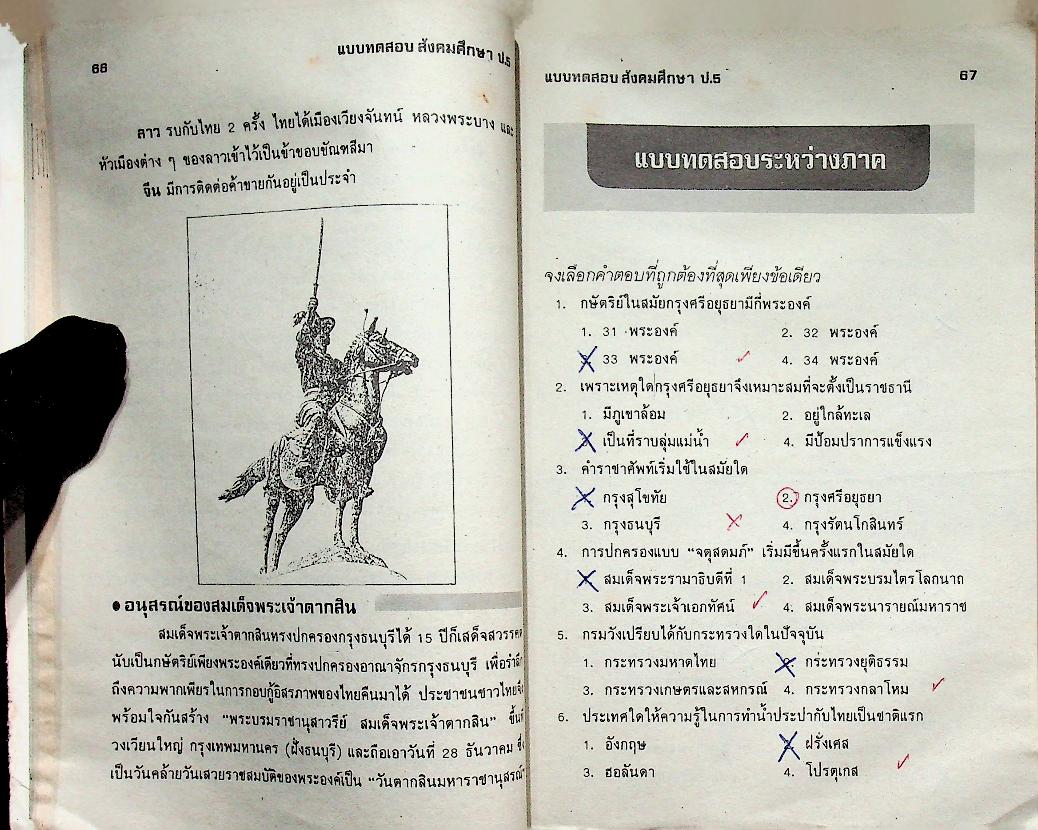 66
แบบทดสอบ สังคมศึกษา ป.5
ลาว รบกับไทย 2 ครั้ง ไทยได้เมืองเวียงจันทน์ หลวงพระบาง และ
หัวเมืองต่าง ๆ ของลาวเข้าไว้เป็นข้าขอบขัณฑสีมา
จีน มีการติดต่อค้าขายกันอยู่เป็นประจำ
● อนุสรณ์ของสมเด็จพระเจ้าตากสิน
สมเด็จพระเจ้าตากสินทรงปกครองกรุงธนบุรีได้ 15 ปีก็เสด็จสวรรคต
นับเป็นกษัตริย์เพียงพระองค์เดียวที่ทรงปกครองอาณาจักรกรุงธนบุรี เพื่อรำลึก
ถึงความพากเพียรในการกอบกู้อิสรภาพของไทยคืนมาได้ ประชาชนชาวไทยจึง
พร้อมใจกันสร้าง "พระบรมราชานุสาวรีย์ สมเด็จพระเจ้าตากสิน" ขึ้นที่
วงเวียนใหญ่ กรุงเทพมหานคร (ฝั่งธนบุรี) และถือเอาวันที่ 28 ธันวาคม ซึ่ง
เป็นวันคล้ายวันเสวยราชสมบัติของพระองค์เป็น "วันตากสินมหาราชานุสรณ์"
แบบทดสอบ สังคมศึกษา ป.5
67
แบบทดสอบระหว่างภาค
จงเลือกคำตอบที่ถูกต้องที่สุดเพียงข้อเดียว
1. กษัตริย์ในสมัยกรุงศรีอยุธยามีกี่พระองค์
1. 31 พระองค์ 2. 32 พระองค์
3. 33 พระองค์ 4. 34 พระองค์
2. เพราะเหตุใดกรุงศรีอยุธยาจึงเหมาะสมที่จะตั้งเป็นราชธานี
1. มีภูเขาล้อม 2. อยู่ใกล้ทะเล
3. เป็นที่ราบลุ่มแม่น้ำ 4. มีป้อมปราการแข็งแรง
3. คำราชาศัพท์เริ่มใช้ในสมัยใด
1. กรุงสุโขทัย 2. กรุงศรีอยุธยา
3. กรุงธนบุรี 4. กรุงรัตนโกสินทร์
4. การปกครองแบบ "จตุสดมภ์" เริ่มมีขึ้นครั้งแรกในสมัยใด
1. สมเด็จพระรามาธิบดีที่ 1 2. สมเด็จพระบรมไตรโลกนาถ
3. สมเด็จพระเจ้าเอกทัศน์ 4. สมเด็จพระนารายณ์มหาราช
5. กรมวังเปรียบได้กับกระทรวงใดในปัจจุบัน
1. กระทรวงมหาดไทย 2. กระทรวงยุติธรรม
3. กระทรวงเกษตรและสหกรณ์ 4. กระทรวงกลาโหม
6. ประเทศใดให้ความรู้ในการทำน้ำประปากับไทยเป็นชาติแรก
1. อังกฤษ 2. ฝรั่งเศส
3. ฮอลันดา 4. โปรตุเกส